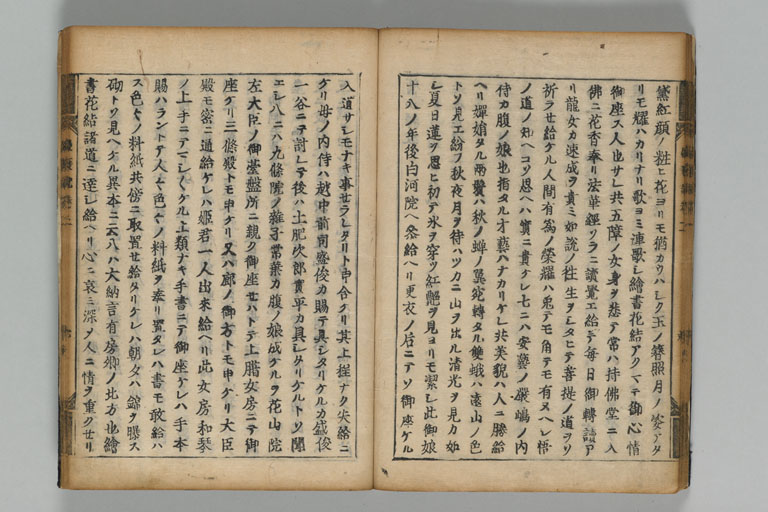 黛紅顔ノ粧ヒ花ヨリモ猶カウハシク玉ノ簪照月ノ姿アタ
リモ耀ハカリナリ歌ヨミ連歌シ繪書花結アクマテ御心情
御座ス人也サレ共五障ノ女身ヲ悲テ常ハ持佛堂ニ入
佛ニ花香奉リ法華經ソラニ讀覺エ給テ毎日御轉讀ア
リ龍女カ速成ヲ貴ミ如説ノ往生ヲシタヒテ菩提ノ道ヲソ
祈ラせ給ケル人間有為ノ榮耀ハ兎テモ角テモ有ヌヘシ悟
ノ道ノ知ヘコソ思ヘハ實ニ貴ケレ七ニハ安藝ノ嚴嶋ノ内
侍カ腹ノ娘也指タル才藝ハナカリケレ共美貌ハ人ニ勝給
ヘリ嬋娟タル兩鬢ハ秋ノ蝉ノ翼宛轉タル雙蛾ハ遠山ノ色
トソ見エ紛フ秋夜月ヲ待ハツカニ山ヲ出ル清光ヲ見カ如
シ夏日蓮ヲ思ヒ初テ水ヲ穿ツ紅艶ヲ見ヨリモ潔シ此御娘
十八ノ年後白河院ヘ參給ヘリ更衣ノ后ニテソ御座ケル
入道サシモナキ事せラレタリト申合リ其上程ナク失給ニ
ケリ母ノ内侍ハ越中前司盛俊カ賜テ具シタリケルカ盛俊
一谷ニテ討レテ後ハ土肥次郎實平カ具シタリケルトソ聞
エシ八ニハ九條院ノ雜子常葉カ腹ノ娘成ケルヲ花山院
左大臣ノ御臺盤所ニ親ク御座せハトテ上臈女房ニテ御
座ケリ三條殿トモ申ケリ又ハ廊ノ御方トモ申ケリ大臣
殿モ密ニ通給ケレハ姫君一人出來給ヘリ此女房和琴
ノ上手ニテマシ〱ケル上類ナキ手書ニテ御座ケレハ手本
賜ハラントテ人々色々ノ料紙ヲ奉リ置タレハ書モ敢給ハ
ス色々ノ料紙共傍ニ取置せ給タリケレハ朝夕ハ錦ヲ曝ス
砌トソ見ヘケル異本ニ云八ハ大納言有房卿ノ北方也繪
書花結諸道ニ達シ給ヘリ心ニ哀ミ深ク人ニ情ヲ重クせリ